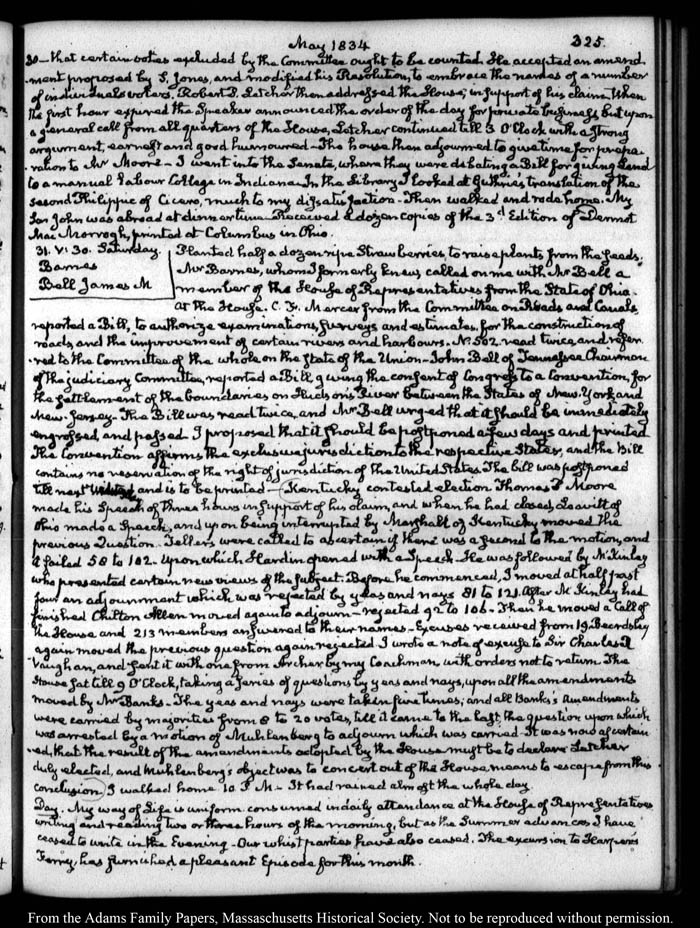 May 1834
325.
30 — that certain votes excluded by the Committee ought to be counted. He accepted an amend
-ment proposed by S. Jones, and modified his Resolution, to embrace the names of a number
of individuals voters. Robert P. Letcher then addressed the House, in support of his claim. When
the first hour expired the Speaker announced the order of the day for private business, but upon
a general call from all quarters of the House, Letcher continued till 3 O'Clock with a strong
argument, earnest and good humoured — The house then adjourned to give time for prepa
-ration to Mr Moore — I went into the Senate, where they were debating a Bill for giving Land
to a manual labour College in Indiana. In the Library I looked at Guthrie's translation of the
second Philippic of Cicero, much to my dissatisfaction — Then walked and rode home. My
Son John was abroad at dinner time. Received 2 dozen copies of the 3d Edition of Dermot
Mac Morrogh, printed at Columbus in Ohio.
31. V: 30. Saturday.
Barnes
Bell James M
Planted half a dozen ripe Strawberries, to raise plants from the seeds.
Mr Barnes, whom I formerly knew, called on me with Mr Bell a
member of the House of Representatives from the State of Ohio.
At the House. C. F. Mercer from the Committee on Roads and Canals
reported a Bill, to authorize examinations, surveys and estimates, for the construction of
roads, and the improvement of certain rivers and harbours. N. 502 read twice and refer
-red to the Committee of the whole on the state of the Union — John Bell of Tennessee Chairman
of the judiciary Committee, reported a Bill giving the consent of Congress to a Convention, for
the settlement of the boundaries on Hudson's River between the States of New-York and
New-Jersey — The Bill was read twice, and Mr Bell urged that it should be immediately
engrossed, and passed. I proposed that it should be postponed a few days and printed
The Convention affirms the exclusive jurisdiction to the respective States, and the Bill
contains no reservation of the right of jurisdiction of the United States. The bill was postponed
till next and is to be printed — Kentucky contested election Thomas P Moore
made his Speech of three hours in support of his claim, and when he had closed, Leavitt of
Ohio made a Speech, and upon being interrupted by Marshall of Kentucky moved the
previous Question. Tellers were called to ascertain if there was a second to the motion, and
it failed 58 to 102. Upon which Hardin opened with a Speech — He was followed by McKinley
who presented certain new views of the subject. Before he commenced, I moved at half past
four an adjournment which was rejected by yeas and nays 81 to 121. After McKinley had
finished Chilton Allen moved again to adjourn — rejected 92 to 106 — Then he moved a Call of
the House and 213 members answered to their names — Excuses received from 19. Beardsley
again moved the previous question again rejected I wrote a note of excuse to Sir Charles R
Vaughan, and sent it with one from Archer by my Coachman with orders not to return. The
House sat till 9 O'Clock, taking a series of questions by yeas and nays, upon all the amendments
moved by Mr Banks — The yeas and nays were taken five times; and all Banks's amendments
were carried by majorities from 8 to 20 votes, till it came to the last, the question upon which
was arrested by a motion of Muhlenberg to adjourn which was carried. It was now ascertain
-ed, that the result of the amendments adopted by the House must be to declare Letcher
duly elected, and Muhlenberg's object was to concert out of the House means to escape from this
conclusion. I walked home 10 P. M — It had rained almost the whole day
Day. My way of Life is uniform consumed in daily attendance at the House of Representatives
writing and reading two or three hours of the morning, but as the Summer advances I have
ceased to write in the Evening — Our whist parties have also ceased. The excursion to Harper's
Ferry, has furnished a pleasant Episode for this month.
From the Adams Family Papers, Massachusetts Historical Society. Not to be reproduced without permission.